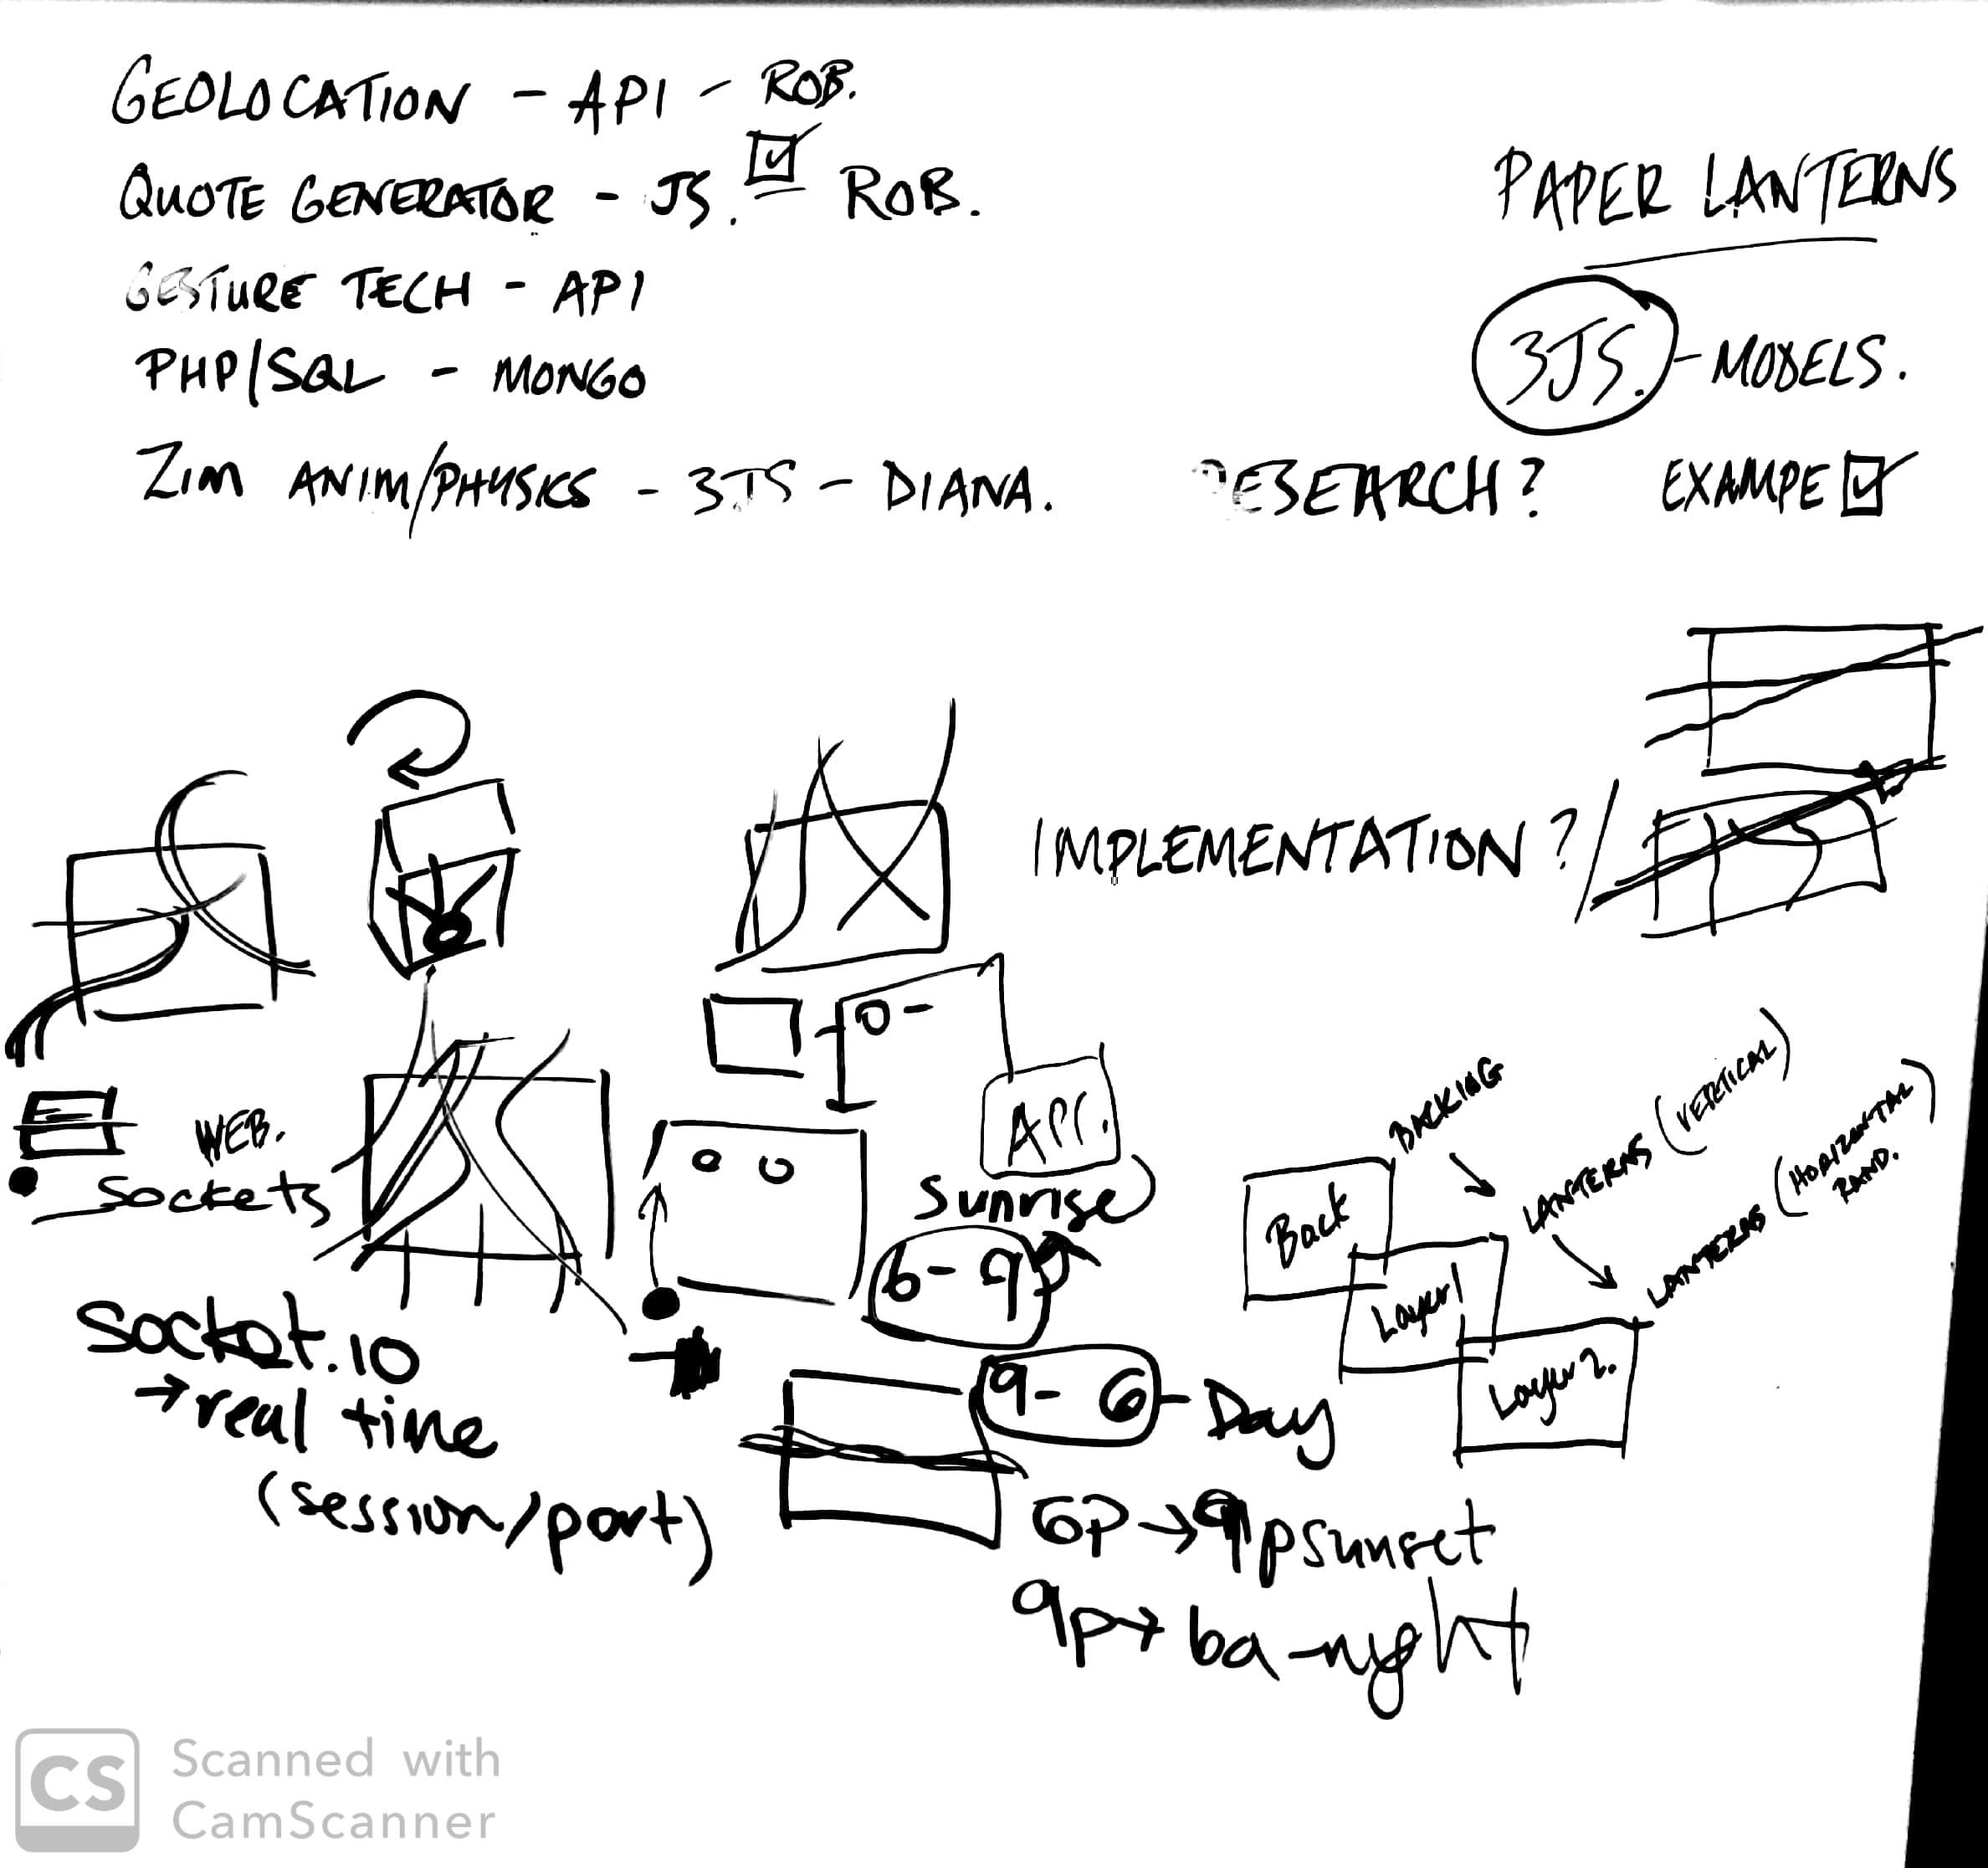 GEOLOCATION - API - ROB.
QUOTE GENERATOR - JS. ROB.
GESTURE TECH - API
PHP/SQL - MONGO
ZIM ANIM/PHYSICS - 3JS - DIANA.
PAPER LANTERNS
3JS. - MODELS.
RESEARCH? EXAMPE
IMPLEMENTATION?/
WEB.
Sockets
Socket.io
→ real time
(session/port)
API.
sunrise
6-9
9-6 - Day
6p → 9p sunset
9p → 6a - night
BACKING
LANTERNS (VERTICAL)
LANTERNS (HORIZONTAL
RAND.
Back
Layer 1
Layer 2.
CS
Scanned with
CamScanner